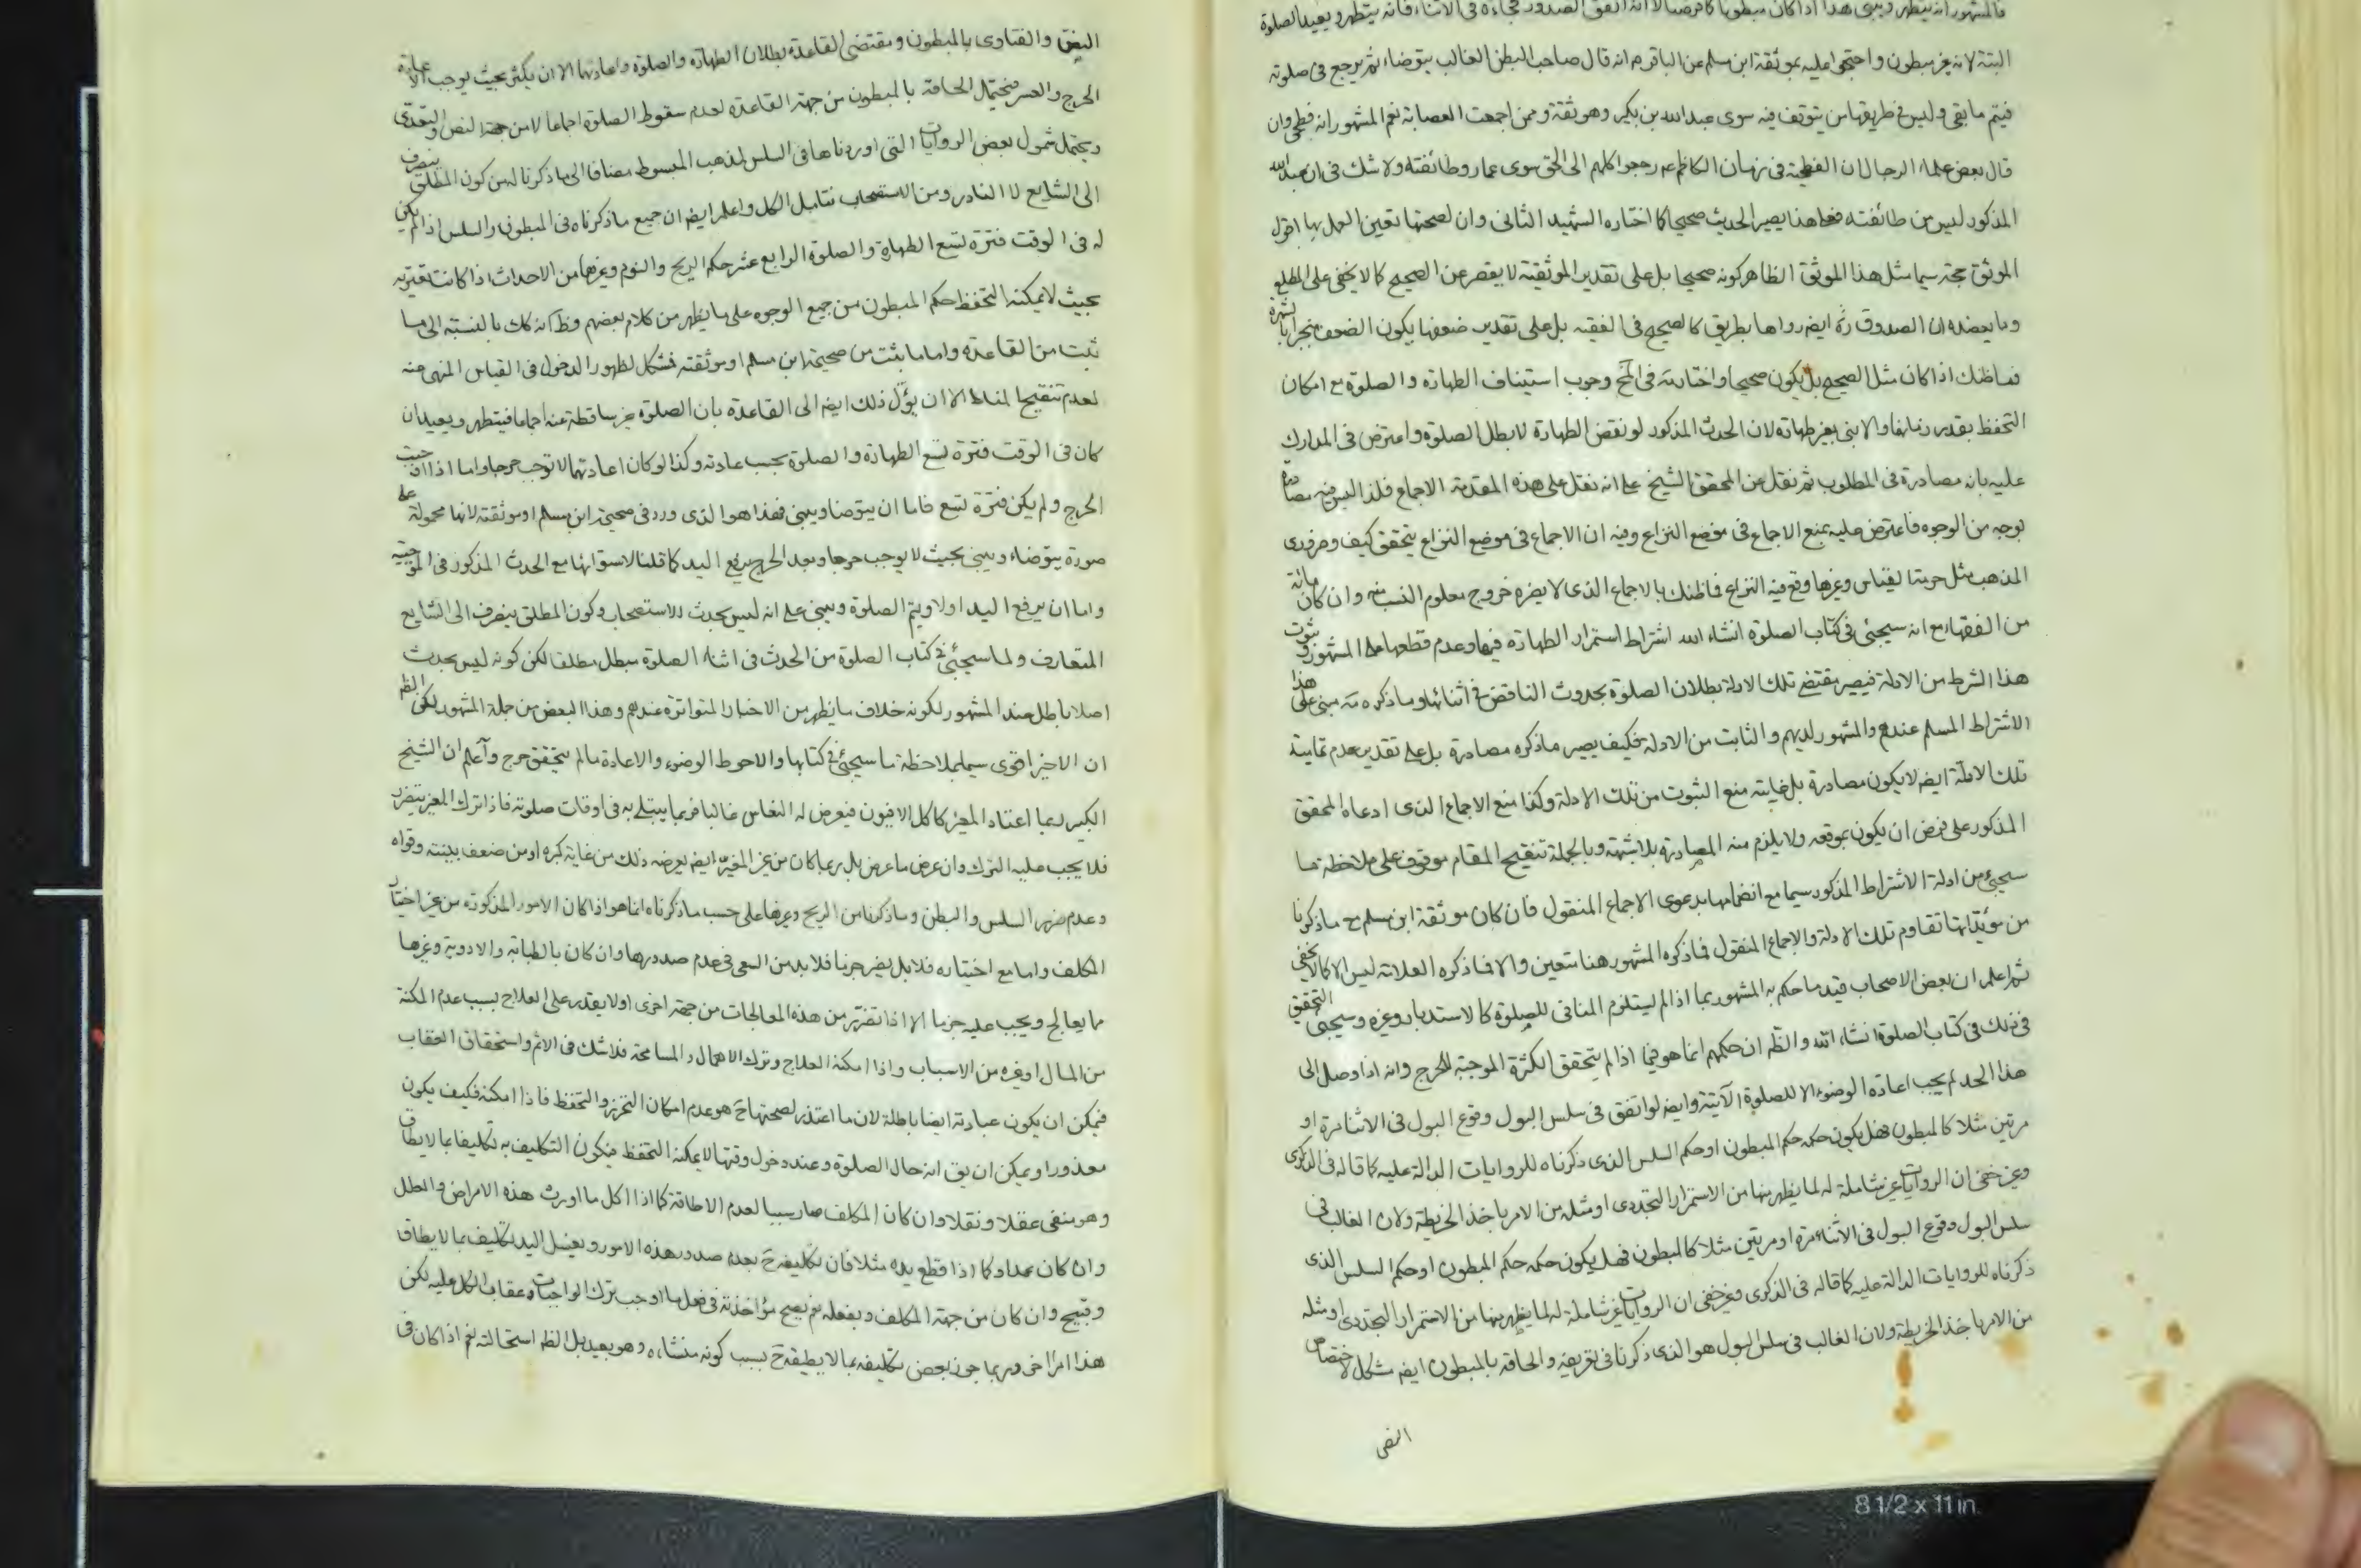 فالمشهور انه يتطهر ويبنى هذا اذا كان مبطونا كما فرضنا لا انه اتفق الصدور فجاءة فى الاثناء فانه يتطهر ويعيد الصلوة
البتة لانه غير مبطون واحتجوا عليه بموثقة ابن مسلم عن الباقر ع انه قال صاحب البطن الغالب يتوضاء ثم يرجع فى صلوته
فيتم ما بقى وليس فى طريقها من يتوقف فيه سوى عبد الله بن بكير وهو ثقة وممن اجمعت العصابة نعم المشهور انه فطحى وان
قال بعض علماء الرجال ان الفطحية فى زمان الكاظم ع رجعوا كلهم الى الحق سوى عمار وطائفته ولا شك فى ان عبد الله
المذكور ليس من طائفته فعلى هذا يصير الحديث صحيحا كما اختاره الشهيد الثانى وان لصحتها تعين العمل بها اقول
الموثق حجة سيما مثل هذا الموثق الظاهر كونه صحيحا بل على تقدير الموثقية لا يقصر عن الصحيح كما لا يخفى على المطلع
وما يعضده ان الصدوق ره ايض رواها بطريق كالصحيح فى الفقيه بل على تقدير ضعفها يكون الضعف منجبرا بالشهرة
فما ظنك اذا كان مثل الصحيح بل يكون صحيحا واختار مة فى لخ وجوب استيناف الطهارة والصلوة مع امكان
التحفظ بقدر زمانهما والا بنى بغير طهارة لان الحدث المذكور لو نقض الطهارة لابطل الصلوة واعترض فى المدارك
عليه بانه مصادرة فى المطلوب ثم نقل عن المحقق الشيخ على انه نقل على هذه المقدمة الاجماع فلذا ليس فيه مصادرة
بوجه من الوجوه فاعترض عليه بمنع الاجماع فى موضع النزاع وفيه ان الاجماع فى موضع النزاع يتحقق كيف وضرورى
المذهب مثل حرمة القياس وغيرها وقع فيه النزاع فما ظنك بالاجماع الذى لا يضره خروج معلوم النسب منه وان كان مائة
من الفقهاء مع انه سيجئ فى كتاب الصلوة انشاء الله اشتراط استمرار الطهارة فيها وعدم قطعها على المشهور وثبوت
هذا الشرط من الادلة فيصير مقتضى تلك الادلة بطلان الصلوة بحدوث الناقض فى اثنائها وما ذكره مة مبنى على هذا
الاشتراط المسلم عندهم والمشهور لديهم والثابت من الادلة فكيف يصير ما ذكره مصادرة بل على تقدير عدم تمامية
تلك الادلة ايض لا يكون مصادرة بل غايته منع الثبوت من تلك الادلة وكذا منع الاجماع الذى ادعاه المحقق
المذكور على فرض ان يكون بموقعه ولا يلزم منه المصادرة بلا شبهة وبالجملة تنقيح المقام موقوف على ملاحظة ما
سيجئ من ادلة الاشتراط المذكور سيما مع انضمامها بدعوى الاجماع المنقول فان كان موثقة ابن مسلم مع ما ذكرنا
من مؤيداتها تقاوم تلك الادلة والاجماع المنقول فما ذكره المشهور هنا متعين والا فما ذكره العلامة ليس الا كما لا يخفى
ثم اعلم ان بعض الاصحاب قيد ما حكم به المشهور بما اذا لم يستلزم المنافى للصلوة كالاستدبار وغيره وسيجئ التحقيق
فى ذلك فى كتاب الصلوة انشاء الله والظ ان حكمهم انما هو فيما اذا لم يتحقق الكثرة الموجبة للحرج وانه اذا وصل الى
هذا الحد لم يجب اعادة الوضوء الا للصلوة الآتية وايض لو اتفق فى سلس البول وقوع البول فى الاثناء مرة او
مرتين مثلا كالمبطون فهل يكون حكمه حكم المبطون او حكم السلس الذى ذكرناه للروايات الدالة عليه كما قاله فى الذكرى
وغير خفى ان الروايات غير شاملة له لما يظهر منها من الاستمرار التجددى او مثله من الامر باخذ الخريطة ولان الغالب فى
سلس البول وقوع البول فى الاثناء مرة او مرتين مثلا كالمبطون فهل يكون حكمه حكم المبطون او حكم السلس الذى
ذكرناه للروايات الدالة عليه كما قاله فى الذكرى وغير خفى ان الروايات غير شاملة له لما يظهر منها من الاستمرار التجددى او مثله
من الامر باخذ الخريطة ولان الغالب فى سلس البول هو الذى ذكرنا فى تعريفه والحاقه بالمبطون ايض مشكل لاختصاص
النص
النص والفتاوى بالمبطون ومقتضى القاعدة بطلان الطهارة والصلوة واعادتهما الا ان يكثر بحيث يوجب الاعادة
الحرج والعسر فيحتمل الحاقه بالمبطون من جهة القاعدة لعدم سقوط الصلوة اجماعا لا من جهة النص والتعدى
ويحتمل شمول بعض الروايات التى اوردناها فى السلس لمذهب المبسوط مضافا الى ما ذكرنا له من كون المطلق ينصرف
الى الشايع لا النادر ومن الاستصحاب فتامل الكل واعلم ايض ان جميع ما ذكرناه فى المبطون والسلس اذا لم يكن
له فى الوقت فترة تسع الطهارة والصلوة الرابع عشر حكم الريح والنوم وغيرهما من الاحداث اذا كانت تعتريه
بحيث لا يمكنه التحفظ حكم المبطون من جميع الوجوه على ما يظهر من كلام بعضهم وظ انه كك بالنسبة الى ما
ثبت من القاعدة واما ما ثبت من صحيحة ابن مسلم او موثقته فمشكل لظهور الدخول فى القياس المنهى عنه
لعدم تنقيح المناط الا ان يؤل ذلك ايض الى القاعدة بان الصلوة غير ساقطة عنه اجماعا فيتطهر ويعيد ان
كان فى الوقت فترة تسع الطهارة والصلوة بحسب عادته وكذا لو كان اعادتهما لا توجب حرجا واما اذا اوجبت
الحرج ولم يكن فترة تسع فاما ان يتوضا ويبنى فهذا هو الذى ورد فى صحيحة ابن مسلم او موثقته لانها محمولة على
صورة يتوضاء ويبنى بحيث لا يوجب حرجا وبعد الحرج يرفع اليد كما قلنا لاستوائها مع الحدث المذكور فى الموجبية
واما ان يرفع اليد اولا ويتم الصلوة ويبنى على انه ليس بحدث للاستصحاب وكون المطلق ينصرف الى الشايع
المتعارف ولما سيجئ فى كتاب الصلوة من الحدث فى اثناء الصلوة مبطل مطلقا لكن كونه ليس بحدث
اصلا باطل عند المشهور لكونه خلاف ما يظهر من الاخبار المتواترة عندهم وهذا البعض من جملة المشهور لكن الظ
ان الاخير اقوى سيما بملاحظة ما سيجئ فى كتابها والاحوط الوضوء والاعادة ما لم يتحقق حرج واعلم ان الشيخ
الكبير ربما اعتاد المغير كاكل الافيون فيعرض له النعاس غالبا فربما يبتلى به فى اوقات صلوته فاذا ترك المغير يتضرر
فلا يجب عليه الترك وان عرض ما عرض بل ربما كان من غير المغير ايض يعرضه ذلك من غاية كبره او من ضعف بنيته وقواه
وعدم ضرر السلس والبطن وما ذكرنا من الريح وغيرها على حسب ما ذكرناه انما هو اذا كان الامور المذكورة من غير اختيار
المكلف واما مع اختياره فلا بل يضر جزما فلا بد من السعى فى عدم صدورها وان كان بالطبابة والادوية وغيرها
مما يعالج ويجب عليه جزما الا اذا تضرر من هذه المعالجات من جهة اخرى او لا يقدر على العلاج بسبب عدم المكنة
من المال او غيره من الاسباب واذا امكنه العلاج وترك الاهمال والمسامحة فلا شك فى الاثم واستحقاق العقاب
فيمكن ان يكون عبادته ايضا باطلة لان ما اعتذر لصحتها ح هو عدم امكان التحرز والتحفظ فاذا امكنه فكيف يكون
معذورا ويمكن ان يق انه حال الصلوة وعند دخول وقتها لا يمكنه التحفظ فيكون التكليف به تكليفا بما لا يطاق
وهو منفى عقلا ونقلا وان كان المكلف صار سببا لعدم الاطاقة كما اذا اكل ما اورث هذه الامراض والعلل
وان كان عمدا وكما اذا قطع يده مثلا فان تكليفه ح بعدم صدور هذه الامور وبغسل اليد تكليف بما لا يطاق
وقبيح وان كان من جهة المكلف وبفعله نعم يصح مؤاخذته فى فعل ما اوجب ترك الواجبات وعقاب الكل عليه لكن
هذا امر اخر وربما جوز بعض تكليفه بما لا يطيقه ح بسبب كونه منشاءه وهو بعيد بل الظ استحالته نعم اذا كان فى
8 1/2 x 11 in.